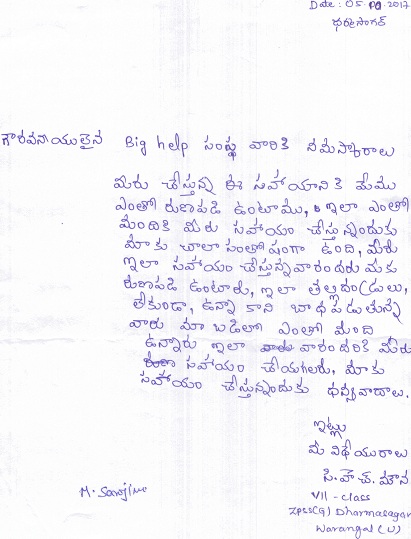 Date : 05.
ధర్మసాగర్
గౌరవనీయులైన Big help సంస్థ వారికి నమస్కారాలు
మీరు చేస్తున్న ఈ సహాయానికి మేము
ఎంతో రుణపడి ఉంటాము, ఇలా ఎంతో
మందికి మీరు సహాయం చేస్తున్నందుకు
మాకు చాలా సంతోషంగా ఉంది, మీరు
ఇలా సహాయం చేస్తున్నవారందరు మకు
రుణపడి ఉంటారు, ఇలా తల్లిదండ్రులు,
లేకుండా, ఉన్నా కాని బాధపడుతున్న
వారు మా బడిలో ఎంతో మంది
ఉన్నారు ఇలా వారందరికి మీరు
సహాయం చేయగలరు, మాకు
సహాయం చేస్తున్నందుకు ధన్యవాదాలు.
ఇట్లు
మీ విధేయురాలు
సి.హెచ్. మౌన
M. Sarojine
VII - class
ZPSS(G) Dharmasagar
Warangal (U)